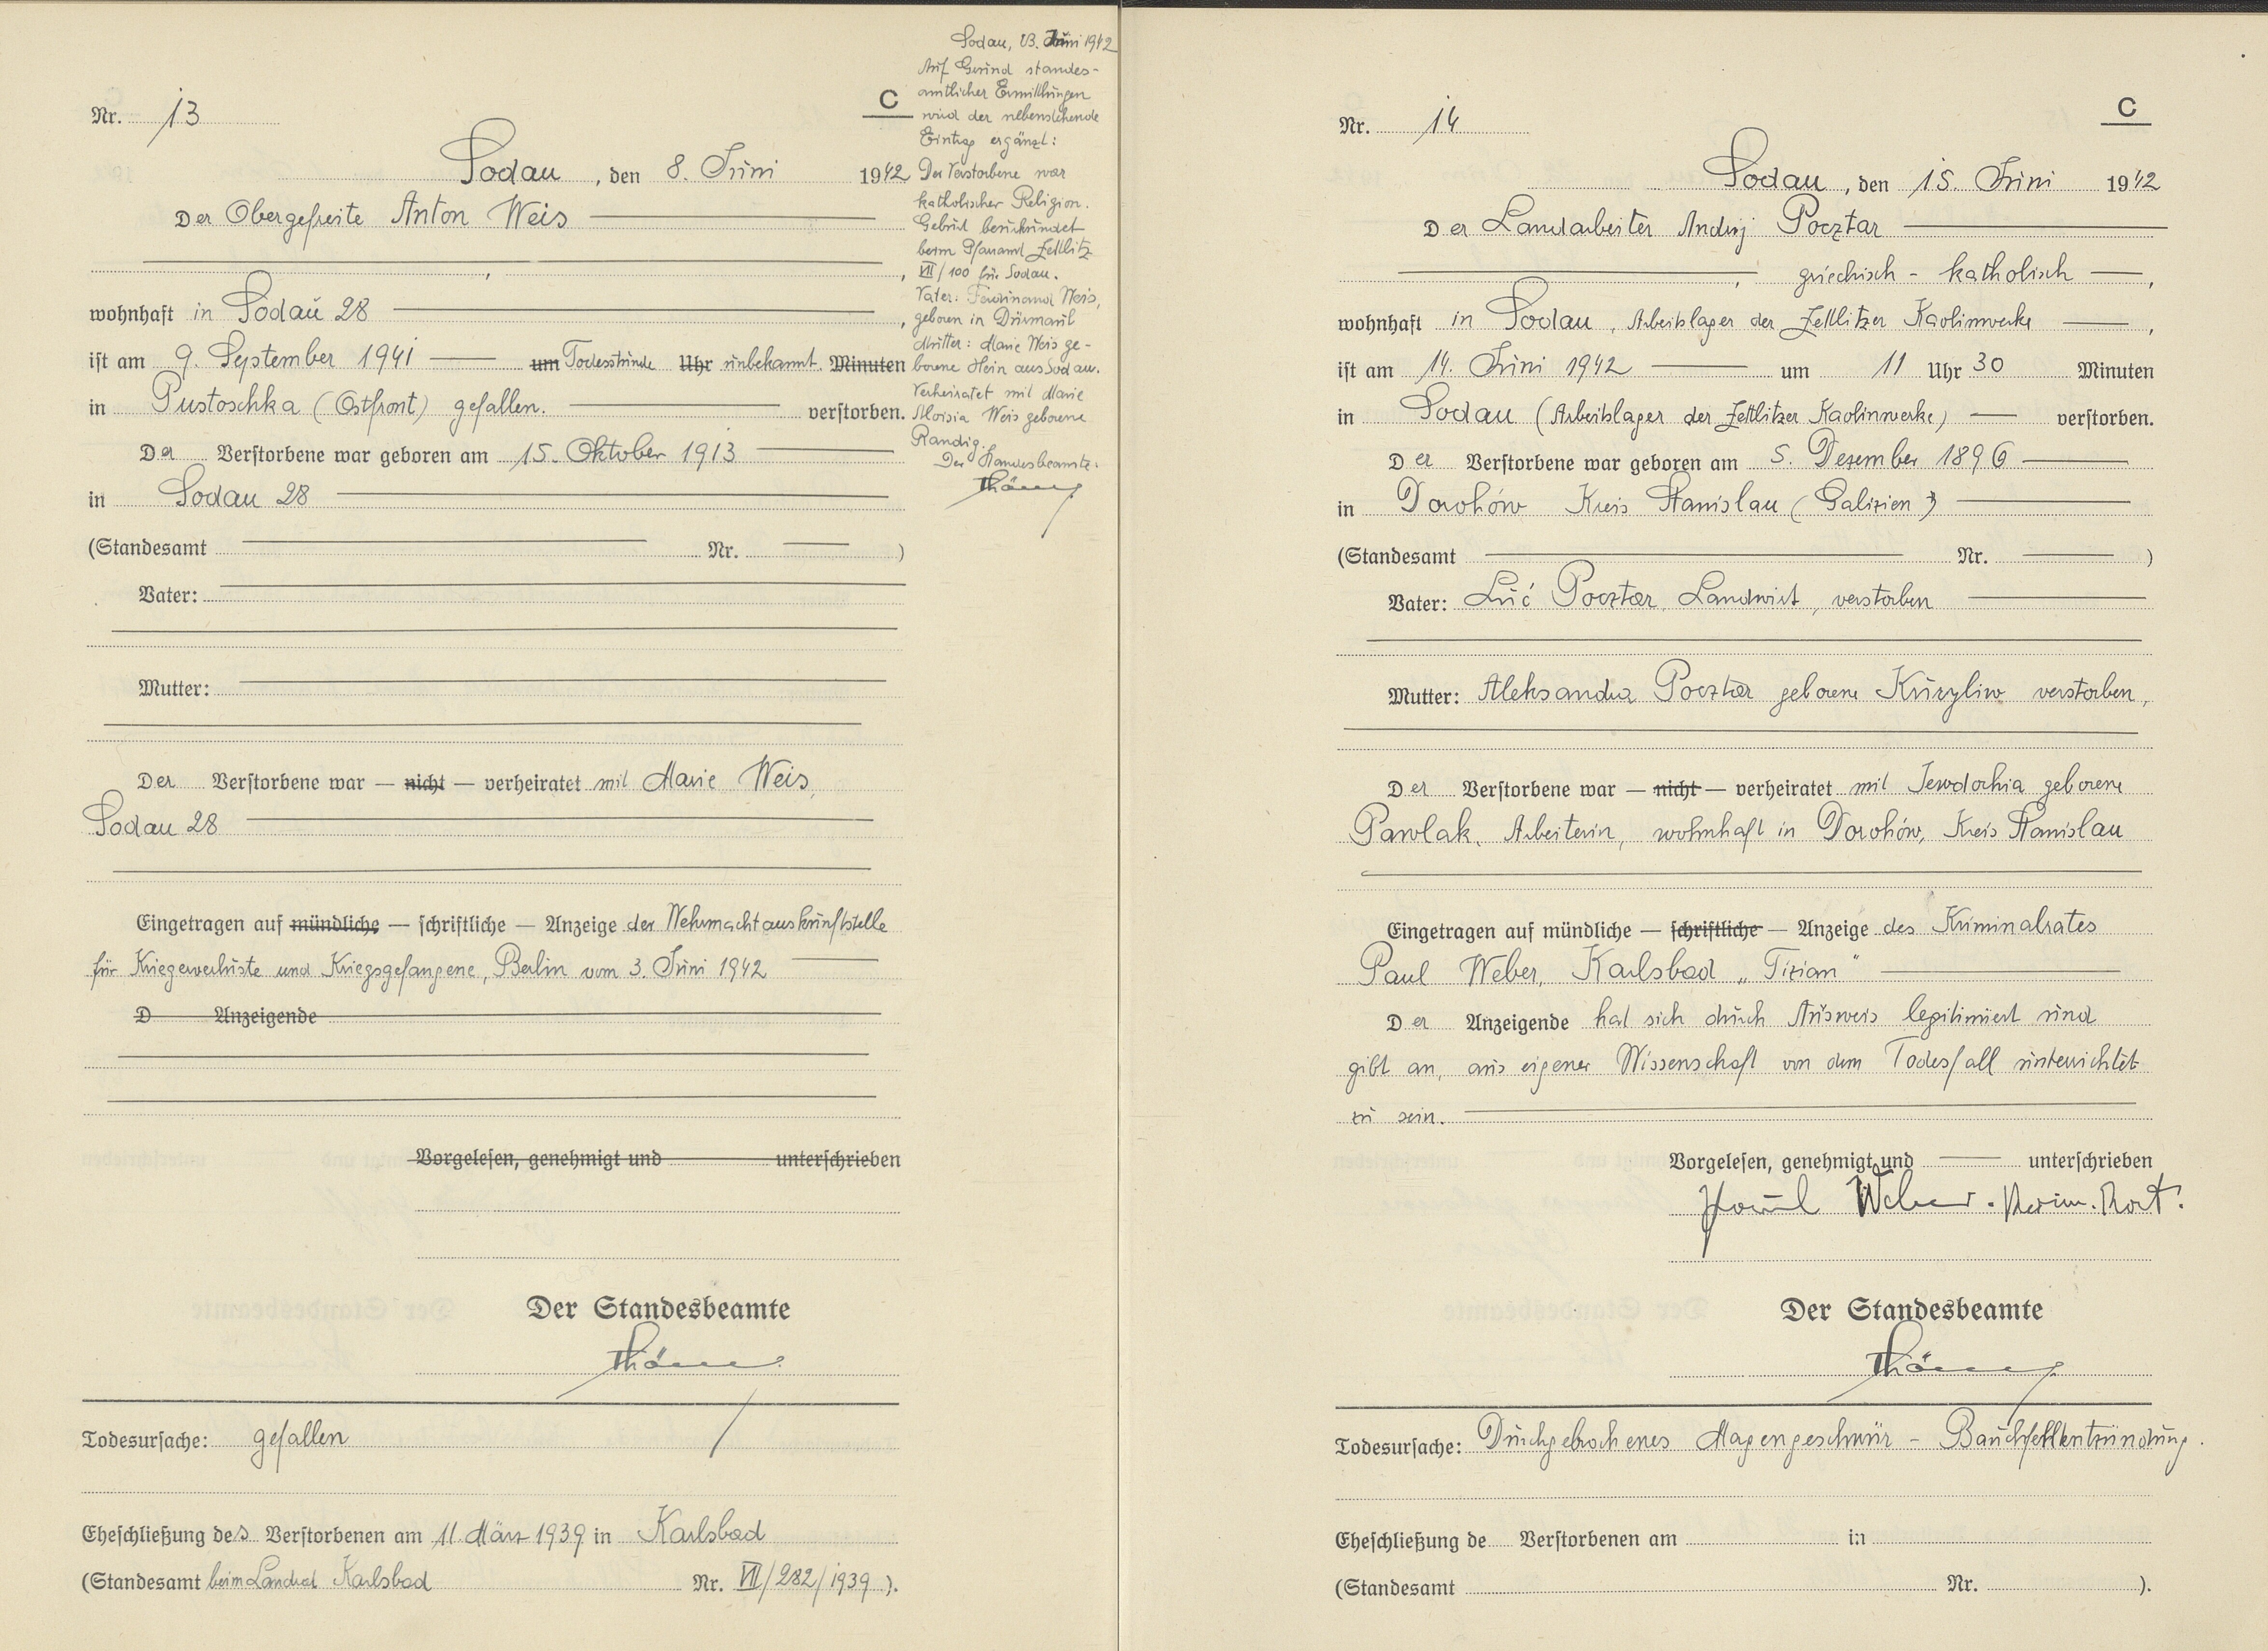 Nr. 13
C
Sodau, den 8. Juni 1942
Der Obergefreite Anton Weis
,
wohnhaft in Sodau 28 ,
ist am 9. September 1941 um Todesstunde Uhr unbekannt Minuten
in Pustoschka (Ostfront) gefallen. verstorben.
Der Verstorbene war geboren am 15. Oktober 1913
in Sodau 28
(Standesamt Nr. )
Vater:
Mutter:
Der Verstorbene war — nicht — verheiratet mit Marie Weis,
Sodau 28
Eingetragen auf mündliche — schriftliche — Anzeige der Wehrmachtauskunftstelle
für Kriegerverluste und Kriegsgefangene, Berlin vom 3. Juni 1942
D Anzeigende
Vorgelesen, genehmigt und unterschrieben
Der Standesbeamte
Todesursache: gefallen
Eheschließung des Verstorbenen am 11. März 1939 in Karlsbad
(Standesamt beim Landrat Karlsbad Nr. VII/282/1939 ).
Sodau, 13. Juni 1942
Auf Grund standes-
amtlicher Ermittlungen
wird der nebenstehende
Eintrag ergänzt:
Der Verstorbene war
katholischer Religion.
Geburt beurkundet
beim Pfarramt Zettlitz
VII/100 für Sodau.
Vater: Ferdinand Weis,
geboren in Dürmaul
Mutter: Marie Weis ge-
borene Hein aus Sodau.
Verheiratet mit Marie
Aloisia Weis geborene
Randig.
Der Standesbeamte:
Nr. 14
C
Sodau, den 15. Juni 1942
Der Landarbeiter Andrij Pocztar
, griechisch - katholisch ,
wohnhaft in Sodau, Arbeitslager der Zettlitzer Kaolinwerke ,
ist am 14. Juni 1942 um 11 Uhr 30 Minuten
in Sodau (Arbeitslager der Zettlitzer Kaolinwerke) verstorben.
Der Verstorbene war geboren am 5. Dezember 1896
in Dorohów Kreis Stanislau (Galizien)
(Standesamt Nr. )
Vater: Luć Pocztar, Landwirt, verstorben
Mutter: Aleksandra Pocztar geborene Kuryliw verstorben,
Der Verstorbene war — nicht — verheiratet mit Jewdochia geborene
Pawlak, Arbeiterin, wohnhaft in Dorohów, Kreis Stanislau
Eingetragen auf mündliche — schriftliche — Anzeige des Kriminalrates
Paul Weber, Karlsbad „Tizian"
Der Anzeigende hat sich durch Ausweis legitimiert und
gibt an, aus eigener Wissenschaft von dem Todesfall unterrichtet
zu sein.
Vorgelesen, genehmigt und unterschrieben
Paul Weber. Krim. Rat.
Der Standesbeamte
Todesursache: Durchgebrochenes Magengeschwür - Bauchfellentzündung.
Eheschließung de Verstorbenen am in
(Standesamt Nr. ).